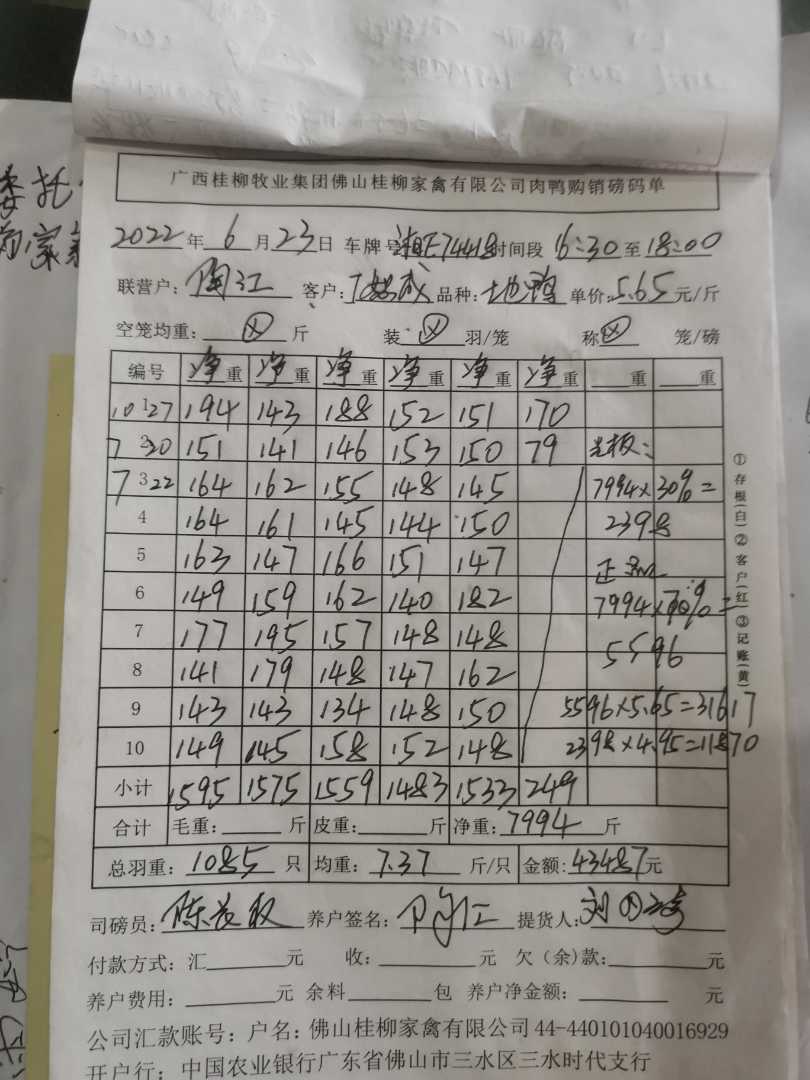 委托
广西桂柳牧业集团佛山桂柳家禽有限公司肉鸭购销磅码单
2022年6月23日 车牌号:湘E74418 时间段16:30至18:00
联营户:陶江 客户: 品种: 单价:5.65元/斤
空笼均重: 斤 装: 羽/笼 称 笼/磅
编号 净重 净重 净重 净重 净重 净重 重 重
10 1 27 194 143 188 152 151 170
7 2 30 151 141 146 153 150 79
7 3 22 164 162 155 148 145 7994×30%=
4 164 161 145 144 150 2398
5 163 147 166 151 147 正
6 149 159 162 140 182 7994×70%=
7 177 195 157 148 148
8 141 179 148 147 162 5596
9 143 143 134 148 150 5596×5.65=31617
10 149 145 158 152 148 2398×4.95=11870
小计 1595 1575 1559 1483 1533 249
合计 毛重: 斤 皮重: 斤 净重:7994斤
总羽重:1085只 均重:7.37斤/只 金额:43487元
①存根(白)②客户(红)③记账(黄)
司磅员: 养户签名: 提货人:
付款方式:汇 元 收: 元 欠(余)款: 元
养户费用: 元 余料 包 养户净金额: 元
公司汇款账号:户名:佛山桂柳家禽有限公司44-440101040016929
开户行:中国农业银行广东省佛山市三水区三水时代支行